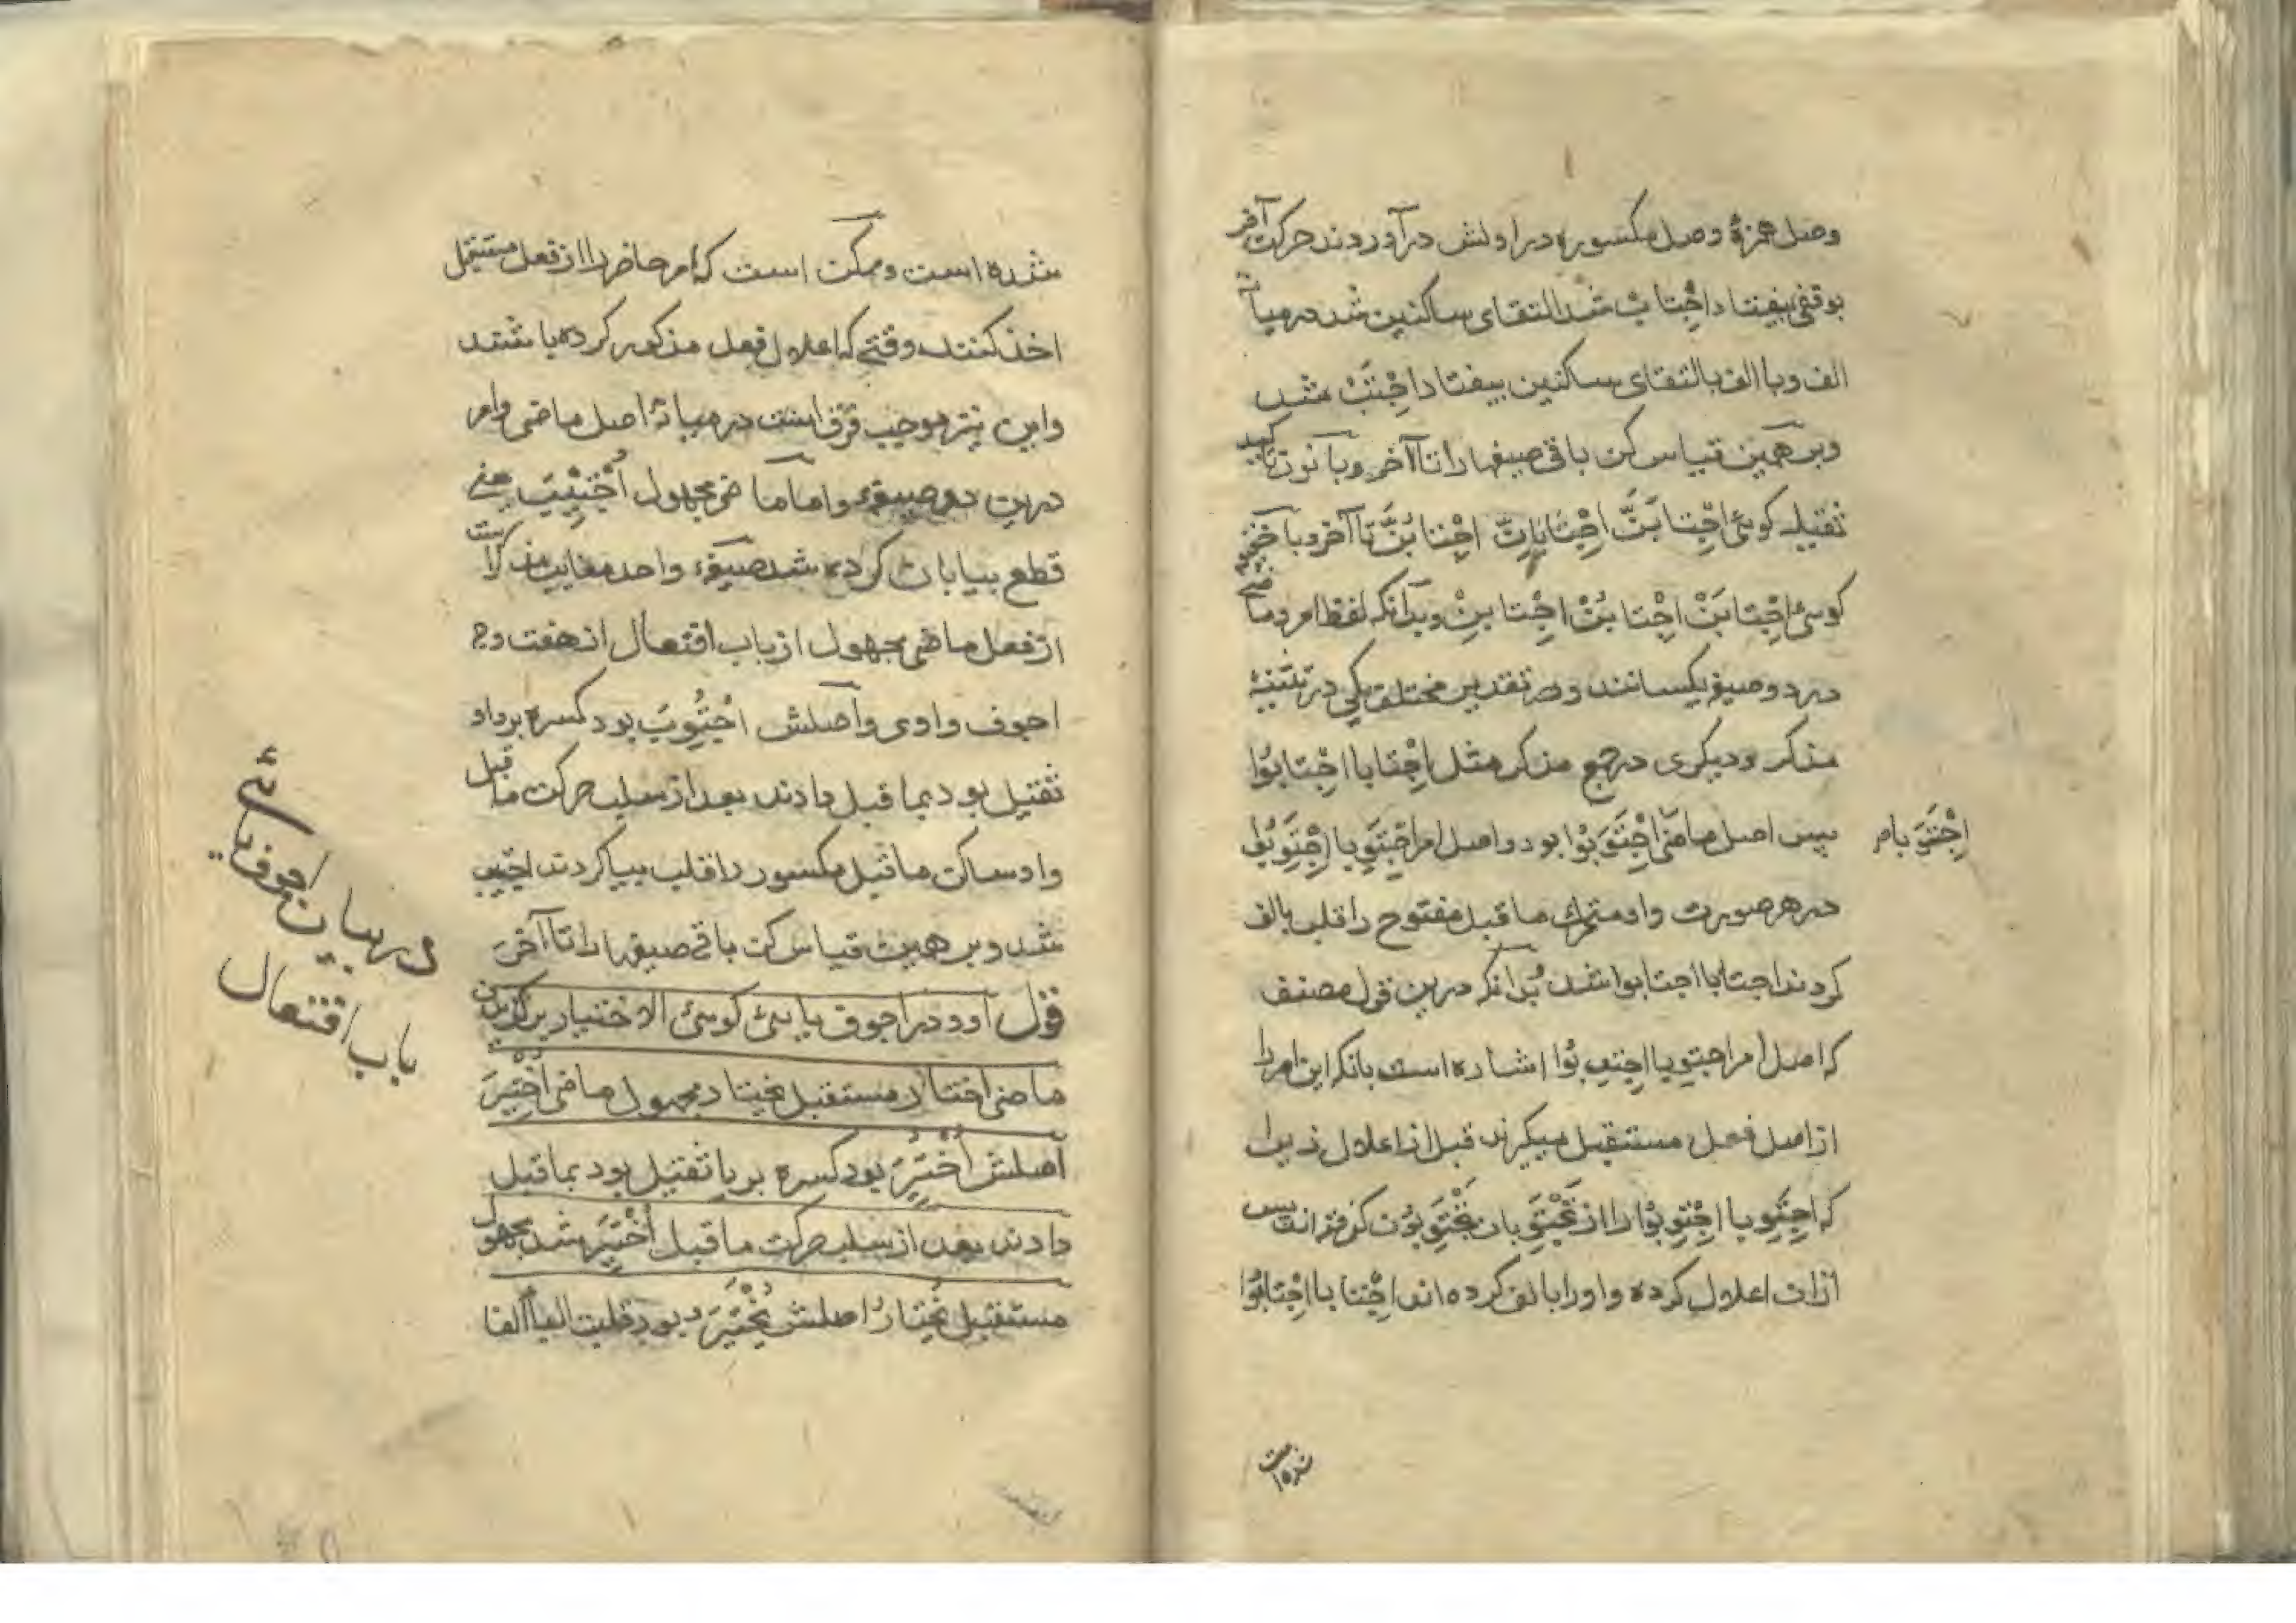 وصل همزهٔ وصل مکسوره در اولش درآوردند حرکت آخر
بوقفی بیفتاد اِجْتابْ شد التقای ساکنین شد درمیان
الف و با الف بالتقای ساکنین بیفتاد اِجْتَبْ شد
و بر همین قیاس کن باقی صیغها را تا آخر و با نون تاکید
ثقیله کوئی اِجْتابَنَّ اِجْتابانِّ اِجْتابُنَّ تا آخر و با خفیفه
کوئی اِجْتابَنْ اِجْتابُنْ اِجْتابِنْ و بدآنکه لفظ امر و ماضی
در دو صیغه یکسانند و در تقدیر مختلف یکی در تثنیهٔ
مذکر و دیکری در جمع مذکر مثل اِجْتابا اِجْتابوُا
پس اصل ماضی اِجْتَوَبا اِجْتَوَبوُا بود و اصل امر اِجْتَوِبا اِجْتَوِبوُا
اِجْتَوَبا م
در هر صورت واو متحرک ما قبل مفتوح را قلب بالف
کردند اجتابا اجتابوا شد بدآنکه درین قول مصنف
که اصل امر اجتوِبا اِجتوِبوُا اشاره است بانکه این امر را
از اصل فعل مستقبل میکرند قبل از اعلال زیرا
که اِجْتَوِبا اِجْتَوِبوُا را از تَجْتَوِبان تَجْتَوِبوُن کرفته اند پس
ازان اعلال کرده واو را بالف کرده اند اِجْتابا اِجْتابوُا
شده است و ممکن است که امر حاضر را از فعل مستقبل
اخذ کنند وقتی که اعلال فعل مذکور کرده باشند
و این نیز موجب فرق است درمیانهٔ اصل ماضی و امر
درین دو صیغه و اما ماضی مجهول اُجْتِیْبَ یعنی
قطع بیابان کرده شد صیغهٔ واحد مغایب مذکر است
از فعل ماضی مجهول از باب افتعال از هفت وجه
اجوف واوی و اصلش اُجْتُوِبَ بود کسره بر واو
ثقیل بود بما قبل دادند بعد از سلب حرکت ما قبل
واو ساکن ما قبل مکسور را قلب بیا کردند اجتیب
شد و بر همین قیاس کن باقی صیغها را تا آخر
قوله و در اجوف یائی کوئی الاختیار برکزیدن
ماضی اختار مستقبل یختار مجهول ماضی اُخْتِیرَ
اصلش اُخْتُیِرَ بود کسره بر یا ثقیل بود بما قبل
دادند بعد از سلب حرکت ما قبل اُخْتِیرَ شد مجهول
مستقبل یُخْتارُ اصلش یُخْتَیَرُ بود قلبت الیاء الفا
در بیان اجوف یائی
باب افتعال